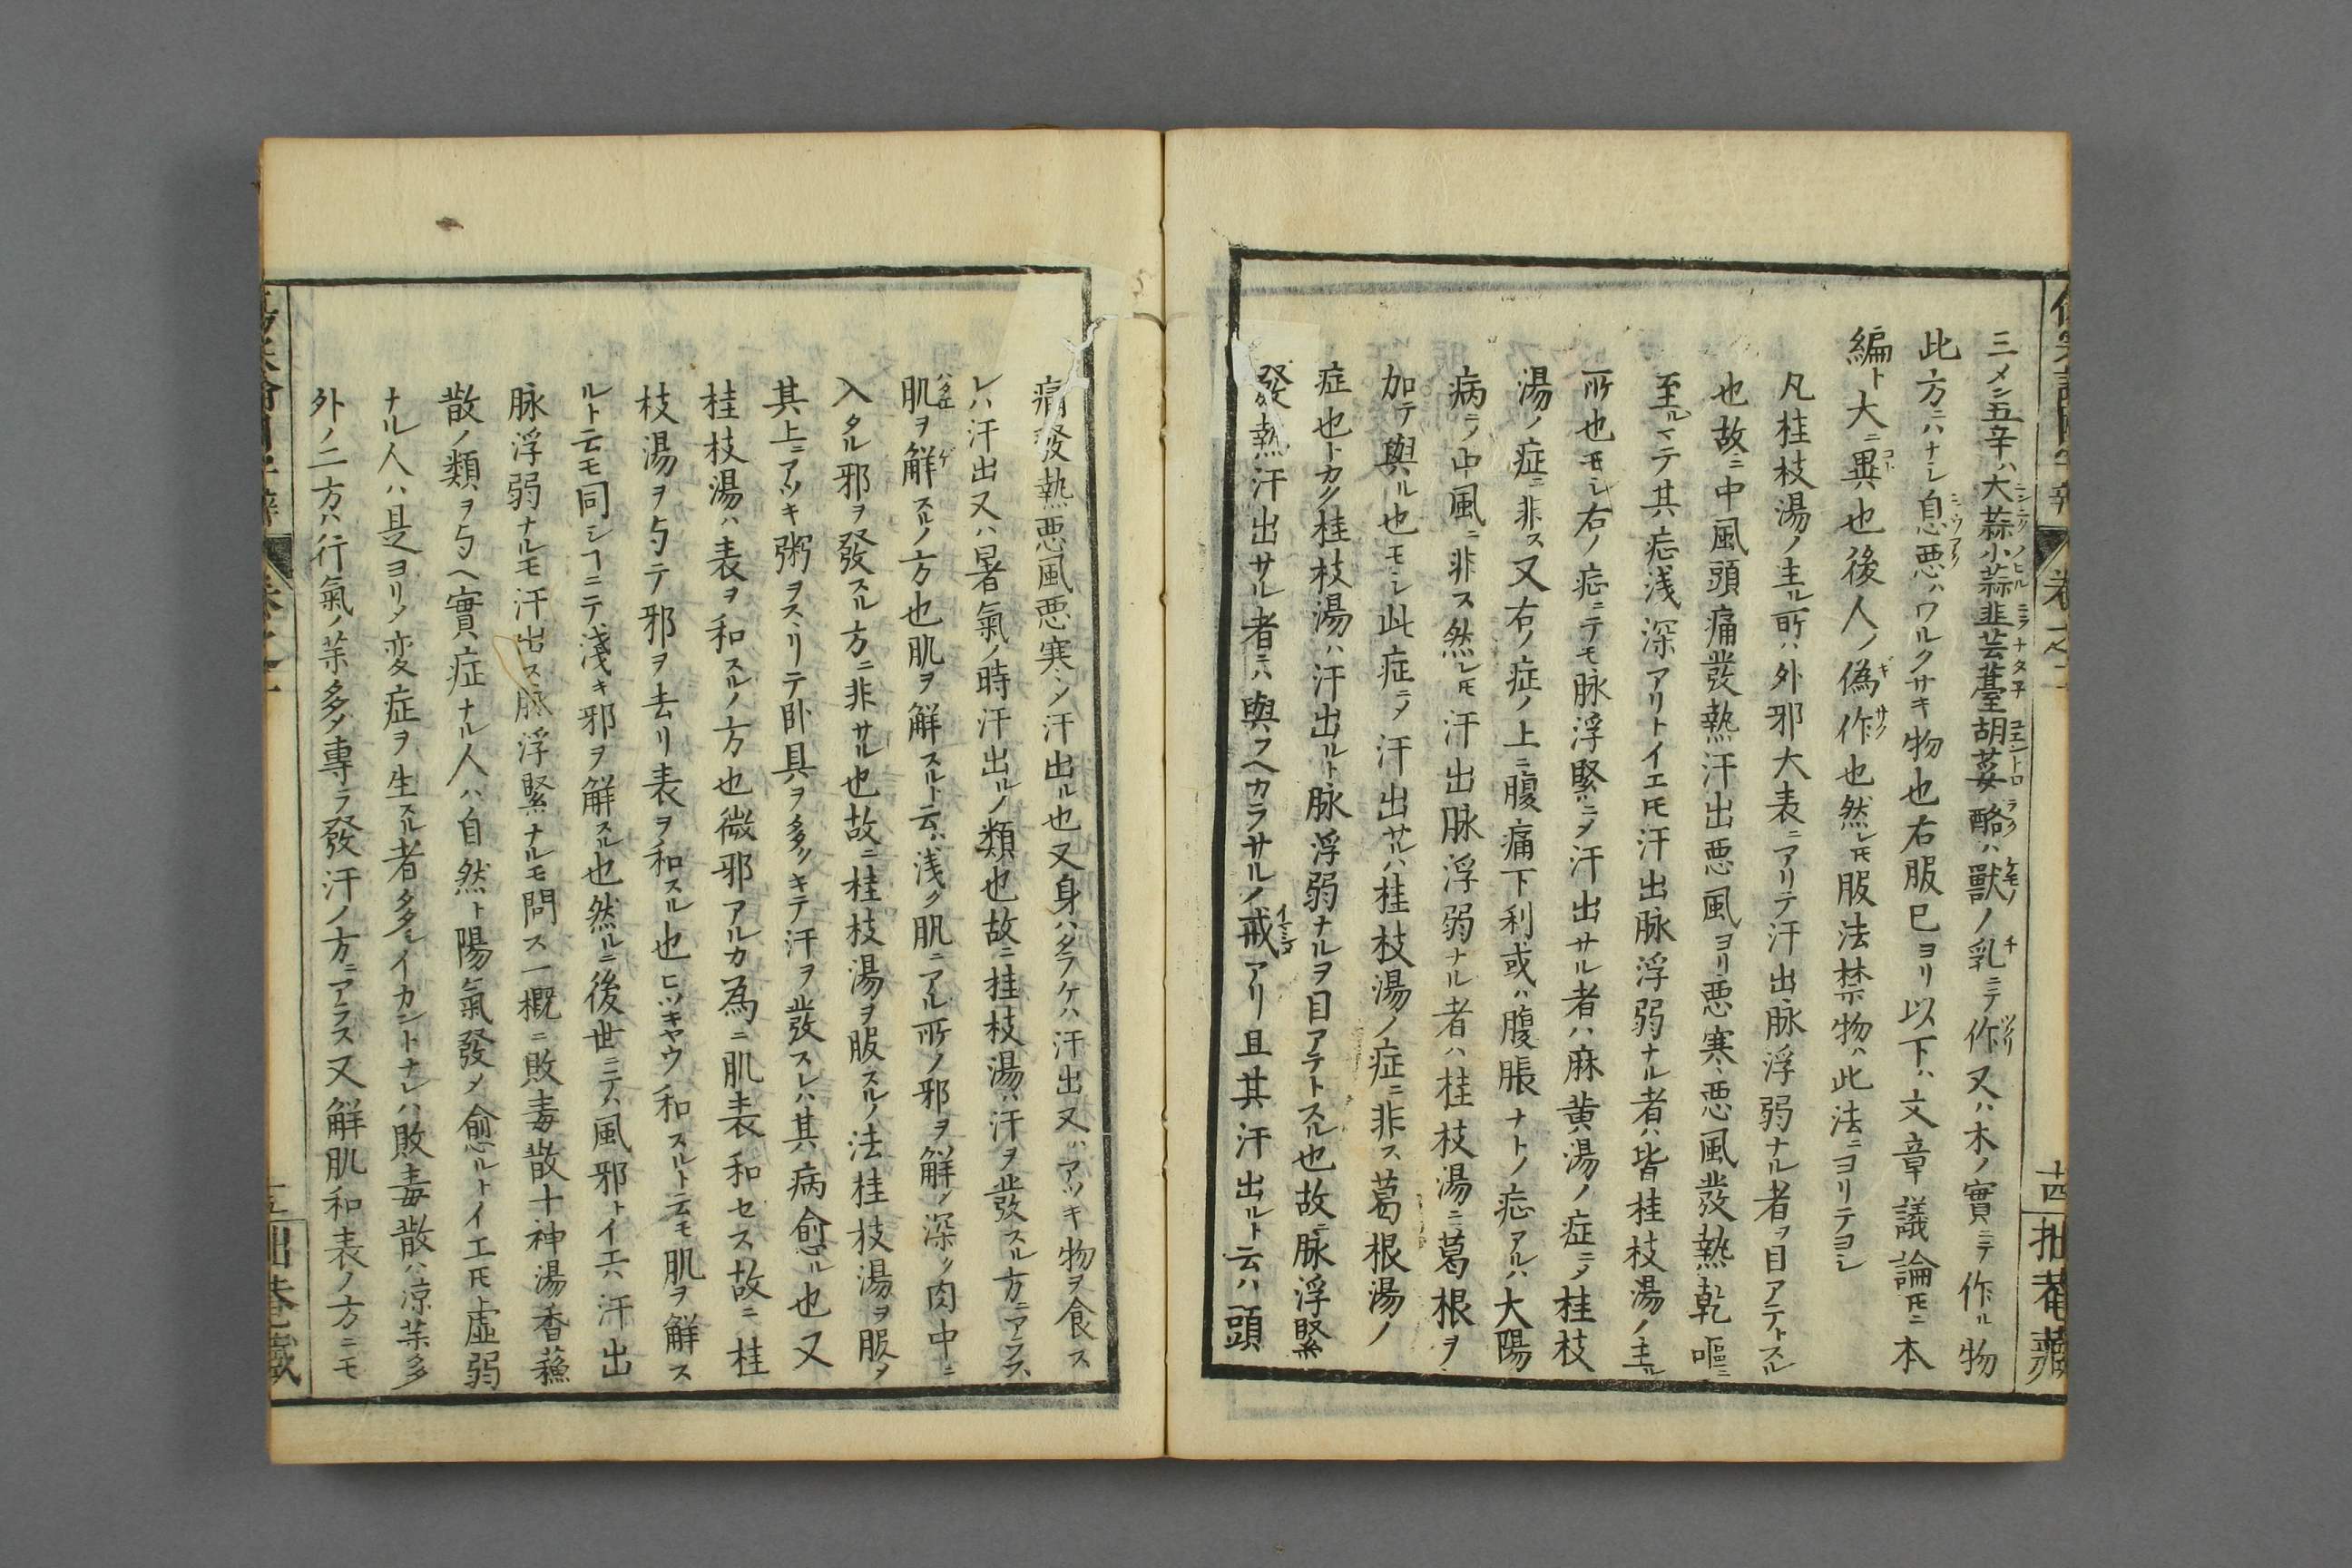 三メン五辛ハ大蒜小蒜韭芸薹胡荽酪ハ獸ノ乳ニテ作又ハ木ノ實ニテ作ル物
此方ニハナシ息悪ハワルクサキ物也右服已ヨリ以下ハ文章議論𪜈ニ本
編ト大ニ異也後人ノ偽作也然レ𪜈服法禁物ハ此法ニヨリテヨシ
凡桂枝湯ノ主ル所ハ外邪大表ニアリテ汗出脉浮弱ナル者ヲ目アテトスル
也故ニ中風頭痛發熱汗出悪風ヨリ悪寒悪風發熱乾嘔ニ
至ルマテ其症浅深アリトイエ𪜈汗出脉浮弱ナル者ハ皆桂枝湯ノ主ル
所也モシ右ノ症ニテモ脉浮緊ニメ汗出サル者ハ麻黄湯ノ症ニメ桂枝
湯ノ症ニ非ス又右ノ症ノ上ニ腹痛下利或ハ腹脹ナトノ症アルハ大陽
病ラ中風ニ非ス然レ𪜈汗出脉浮弱ナル者ハ桂枝湯ニ葛根ヲ
加テ與ル也モシ此症ニメ汗出サルハ桂枝湯ノ症ニ非ス葛根湯ノ
症也トカク桂枝湯ハ汗出ルト脉浮弱ナルヲ目アテトスル也故ニ脉浮緊
發熱汗出サル者ニハ與フヘカラサルノ戒アリ且其汗出ルト云ハ頭
痛發熱悪風悪寒シ汗出ル也又身ハタラケハ汗出又ハアツキ物ヲ食ス
レハ汗出又ハ暑氣ノ時汗出ルノ類也故ニ桂枝湯ハ汗ヲ發スル方ニアラス
肌ヲ解スルノ方也肌ヲ解スルト云ハ浅ク肌ニアル所ノ邪ヲ解メ深ク肉中ニ
入タル邪ヲ發スル方ニ非サル也故ニ桂枝湯ヲ服スルノ法桂枝湯ヲ服メ
其上ニアツキ粥ヲスヽリテ卧具ヲ多クキテ汗ヲ發スレハ其病愈ル也又
桂枝湯ハ表ヲ和スルノ方也微邪アルカ為ニ肌表和セス故ニ桂
枝湯ヲ与テ邪ヲ去リ表ヲ和スル也ヒツキヤウ和スルト云モ肌ヲ解ス
ルト云モ同シヿニテ淺キ邪ヲ解スル也然ルニ後世ニテハ風邪トイエハ汗出
脉浮弱ナルモ汗出ス脉浮緊ナルモ問ス一概ニ敗毒散十神湯香蘓
散ノ類ヲ与ヘ實症ナル人ハ自然ト陽氣發メ愈ルトイエ𪜈虚弱
ナル人ハ是ヨリメ変症ヲ生スル者多シイカントナレハ敗毒散ハ凉薬多
外ノ二方ハ行氣ノ薬多メ專ラ發汗ノ方ニアラス又解肌和表ノ方ニモ
卷之一
十四
拙菴藏